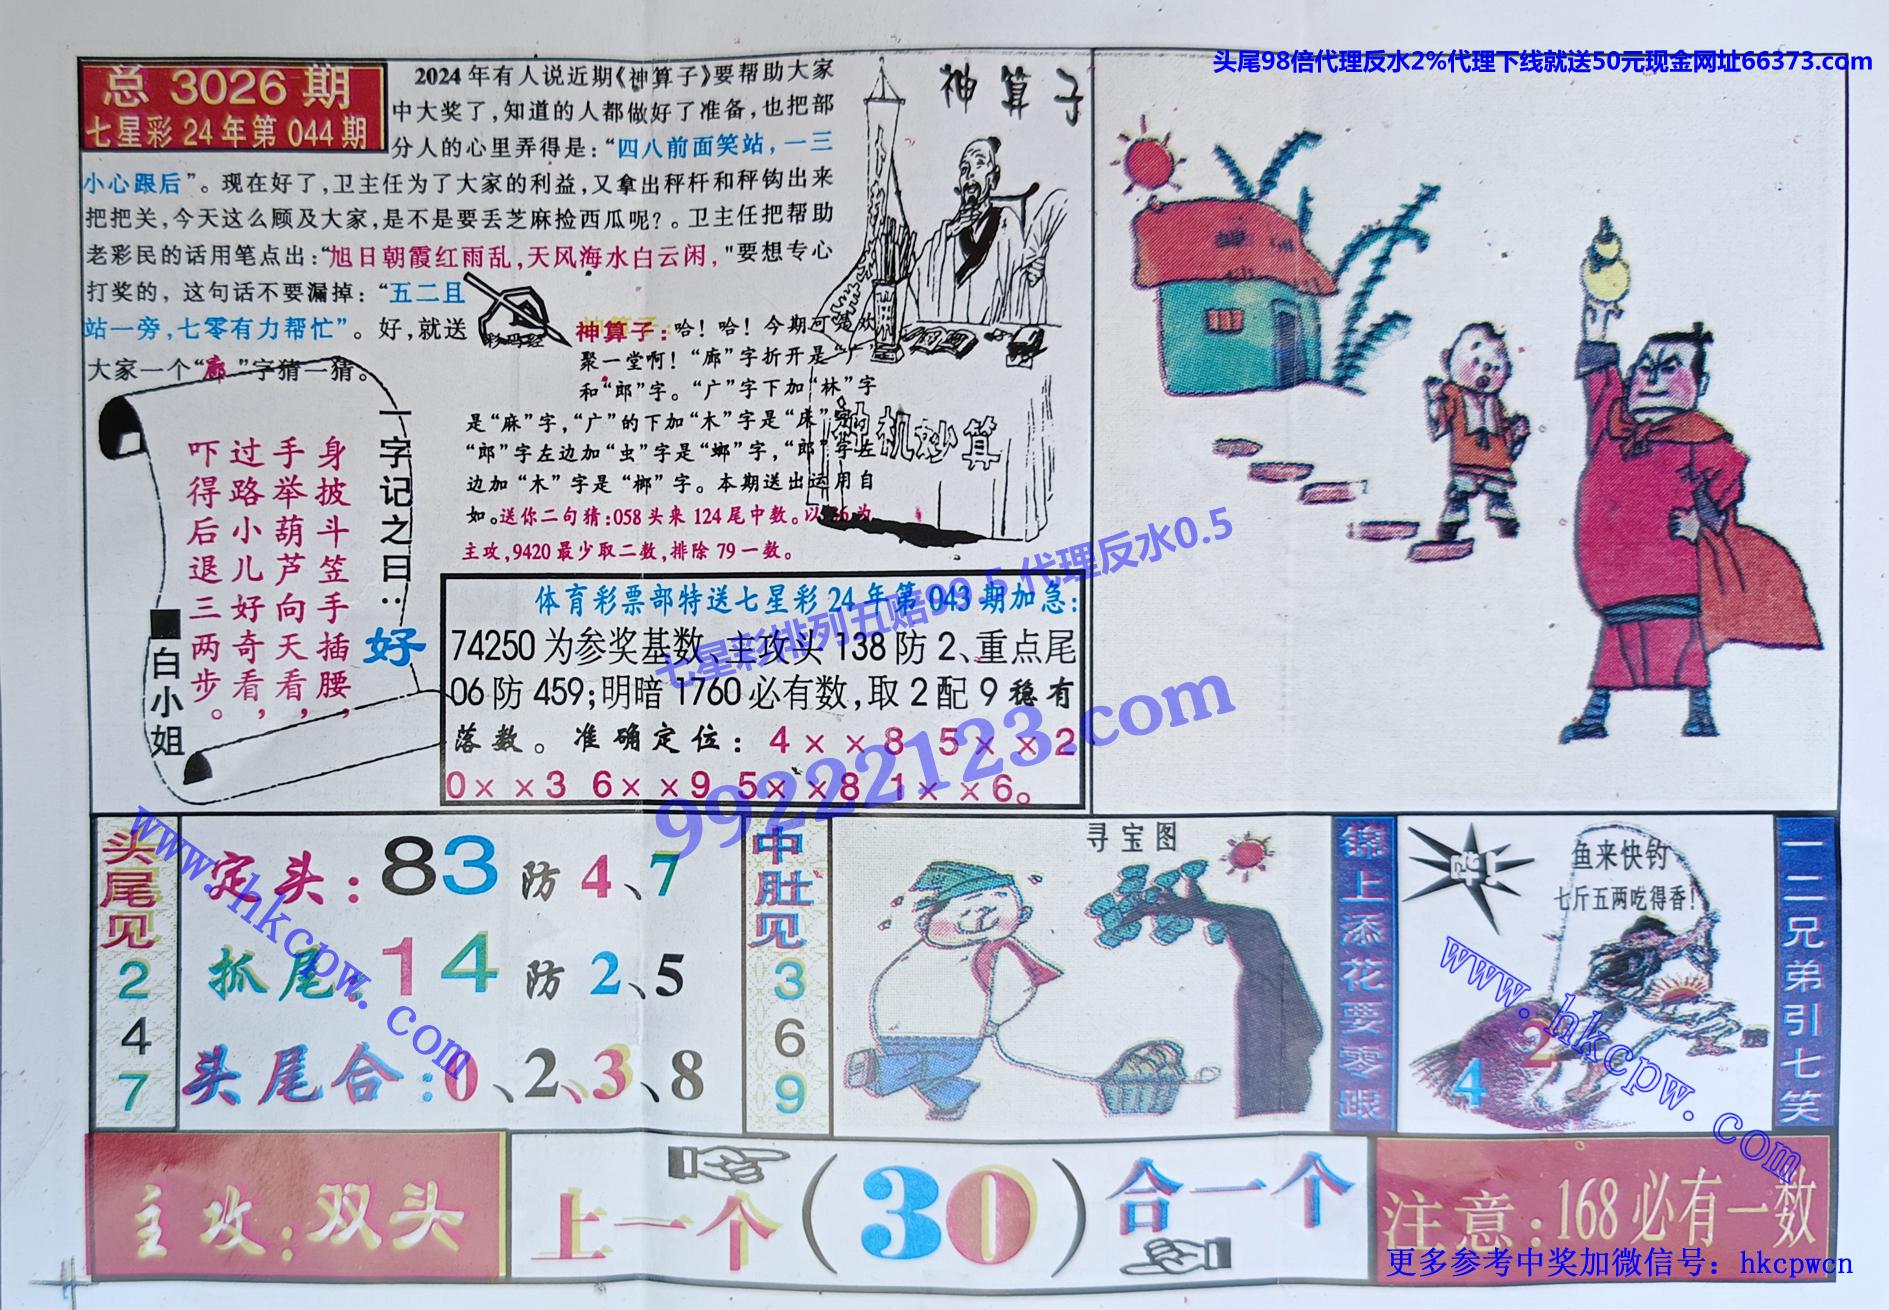 头尾98倍代理反水2%代理下线就送50元现金网址66373.com
总 3026 期
七星彩 24 年第 044 期
2024 年有人说近期《神算子》要帮助大家
中大奖了，知道的人都做好了准备，也把部
分人的心里弄得是：“四八前面笑站，一三
小心跟后”。现在好了，卫主任为了大家的利益，又拿出秤杆和秤钩出来
把把关，今天这么顾及大家，是不是要丢芝麻捡西瓜呢？。卫主任把帮助
老彩民的话用笔点出：“旭日朝霞红雨乱，天风海水白云闲，”要想专心
打奖的，这句话不要漏掉：“五二且
站一旁，七零有力帮忙”。好，就送
大家一个“廊”字猜一猜。
彩码经
神算子
神算子：哈！哈！今期可是欢
聚一堂啊！“廊”字折开是“广”
和“郎”字。“广”字下加“林”字
是“麻”字，“广”的下加“木”字是“床”字，
“郎”字左边加“虫”字是“螂”字，“郎”字左
边加“木”字是“榔”字。本期送出运用自
如。送你二句猜：058 头来 124 尾中数。以 36 为
主攻，9420 最少取二数，排除 79 一数。
神机妙算
一字记之曰：好
身披斗笠手插腰，
手举葫芦向天看，
过路小儿好奇看，
吓得后退三两步。
■白小姐
体育彩票部特送七星彩 24 年第 043 期加急：
74250 为参奖基数、主攻头 138 防 2、重点尾
06 防 459；明暗 1760 必有数，取 2 配 9 稳有
落数。准确定位：4××8 5××2
0××3 6××9 5××8 1××6。
七星彩排列五赔99.5 代理反水0.5
99222123.com
头尾见 2 4 7
定头：83 防 4、7
抓尾：14 防 2、5
头尾合：0、2、3、8
www.hkcpw.com
中肚见 3 6 9
寻宝图
锦上添花要零跟
鱼来快钓
七斤五两吃得香！
2
4
www.hkcpw.com
一二兄弟引七笑
主攻：双头
上一个（30）合一个
注意：168 必有一数
更多参考中奖加微信号：hkcpwcn